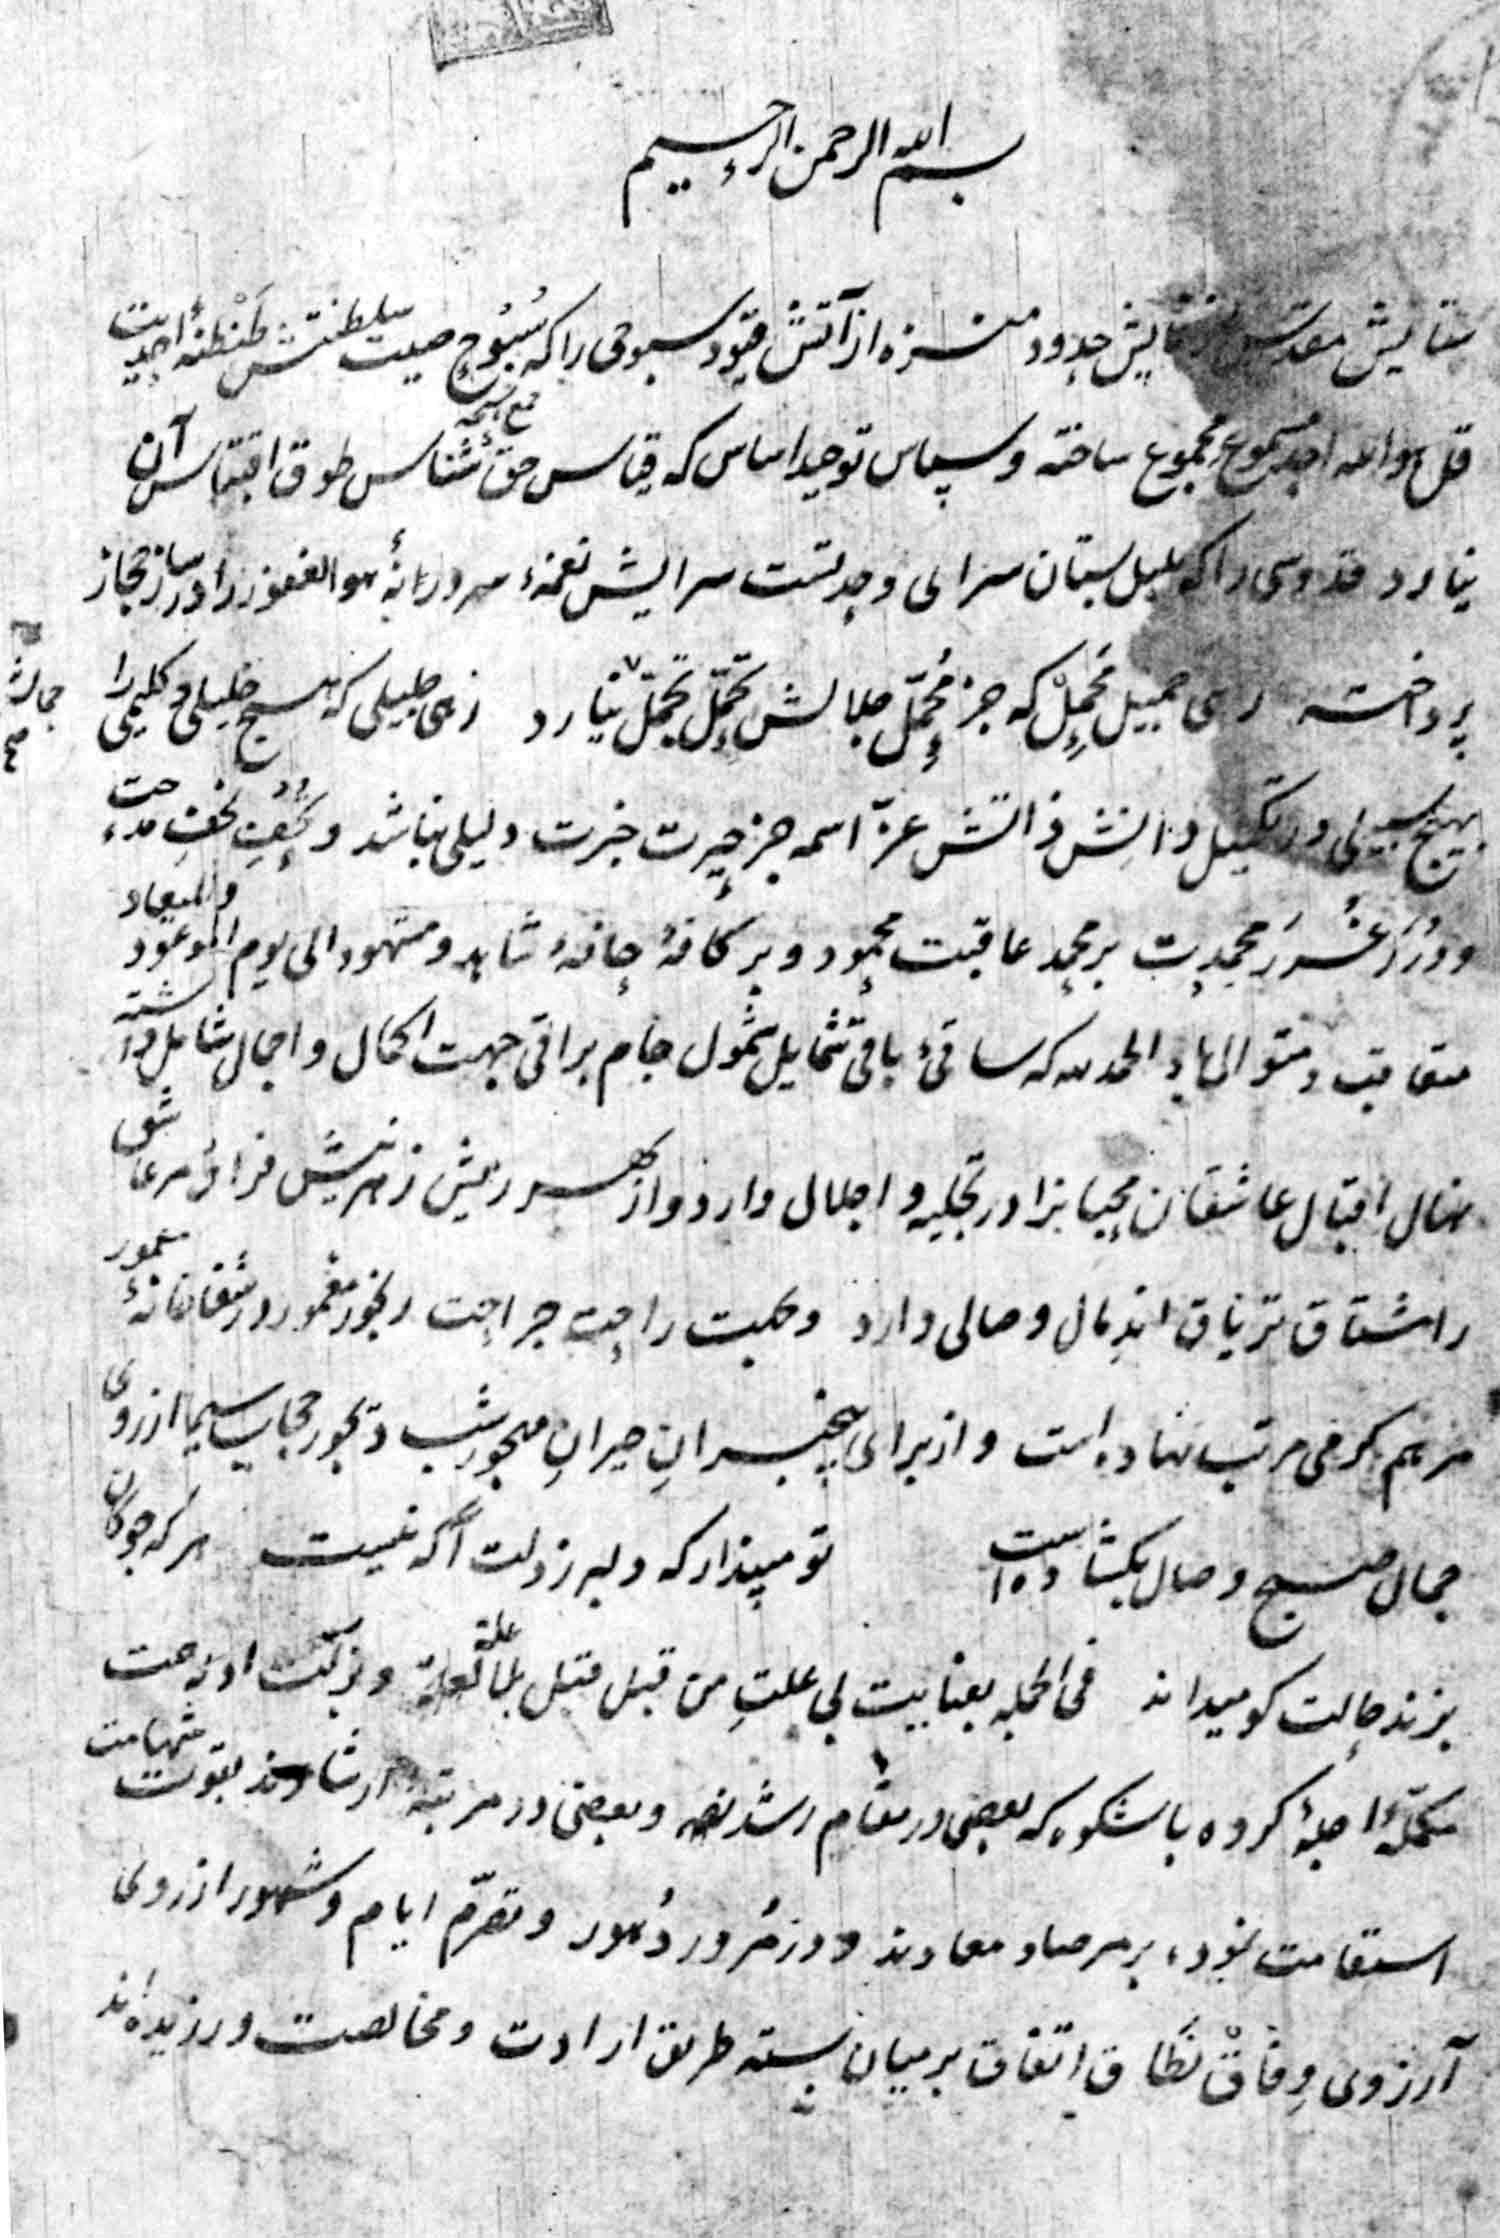 بسم الله الرحمن الرحیم
ستایش مقدس از نمایش حدود منزه از آتش قیود سبوحی را که سُبُوح صیت سلطنتش طَنْطنهٔ احدیت
قل هو الله احد مسموع مجموع ساخته و سپاس توحید اساس که قیاس حق شناس طوق اقتباس آن
نیارد قدوسی را که بلبل بستان سرای وحدتست سرایش نغمهٔ هو الغفور را در ساز مجاز
پرداخته زهی جمیل مُجمِلْ که جز مُحمّل جلالش تحمّل تجمّل نیارد زهی جلیلی که هیچ خلیلی و کلیمی را
جمالش صح
بهیچ سبیلی در تکمیل دانش ذاتش عزّ اسمه جز حیرت خبرت دلیلی نباشد و تحف مدحت
و دُرَر غُرَر محمدت بر محمد عاقبت محمود و بر کافهٔ شاهد و مشهود الی یوم الموعود والمیعاد
متعاقب و متوالی باد الحمد لله که ساقی باقی شمایل شمول جام براقی جهت اکمال و اجمال شامل داشته
نهال اقبال عاشقان را در تجلیه و اجلال وارد و از هر ریش زهر نیش فراق مر عاشق
را اشتاق تریاق اندمال وصالی دارد و جهت راحت جراحت رنجور مغمور در شفاخانهٔ معمور
مرهم کرمی مرتب نهاده است و از برای بیخبران حیران مهجور شب دیجور حجاب سیما از روی
جمال صبح وصال بکشاده است تو مپندار که دلبر ز دلت آگه نیست هر که چوگان
بزند حالت گو میداند فی الجمله بعنایت بی علتِ من قبل قبل بلا علة و برکت ادیه حت
مکملهٔ اجلهٔ گروه باشکوه که بعضی در مقام رشدند و بعضی در مرتبهٔ ارشادند بقوت شهامت
استقامت نبود بر مرصاد معادند و در مُرور دُهور و تصرّم ایام و شهور از روی
آرزوی وِفاقْ نطاق اتفاق بر میان بسته طریق ارادت و مخالصت ورزیده اند